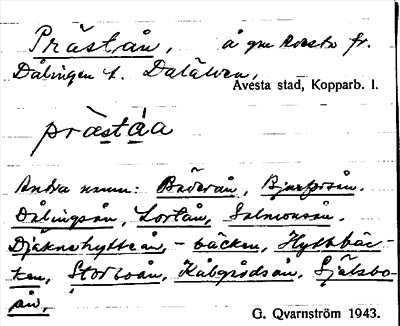 Prästån, å gm Avesta fr.
Dålingen t. Dalälven,
Avesta stad, Kopparb. l.
präståa
Andra namn: Bäverån, Bjurforsån,
Dålingsån, Lortån, Salmonsån,
Djäknehytteån, - bäcken, Hyttbäc-
ken, Storboån, Kålgårdsån, Sjelsbo-
ån,
G. Qvarnström 1943.